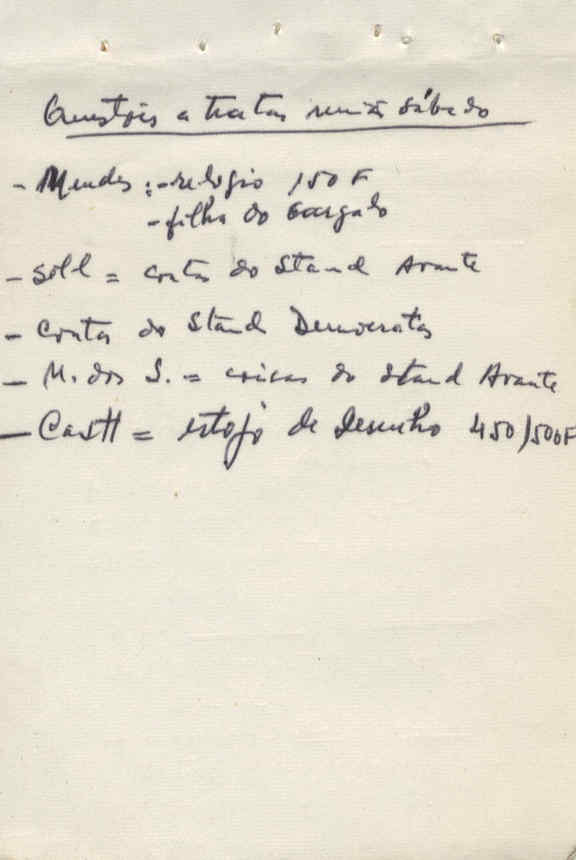 Questões a tratar reunião sábado
- Mendes : - relogio 150 F
- filha do Gargalo
- Soll = contas do Stand Avante
- Contas do Stand Democratas
- M. dos S. = coisas do stand Avante
- Castl = estojo de desenho 450/500F